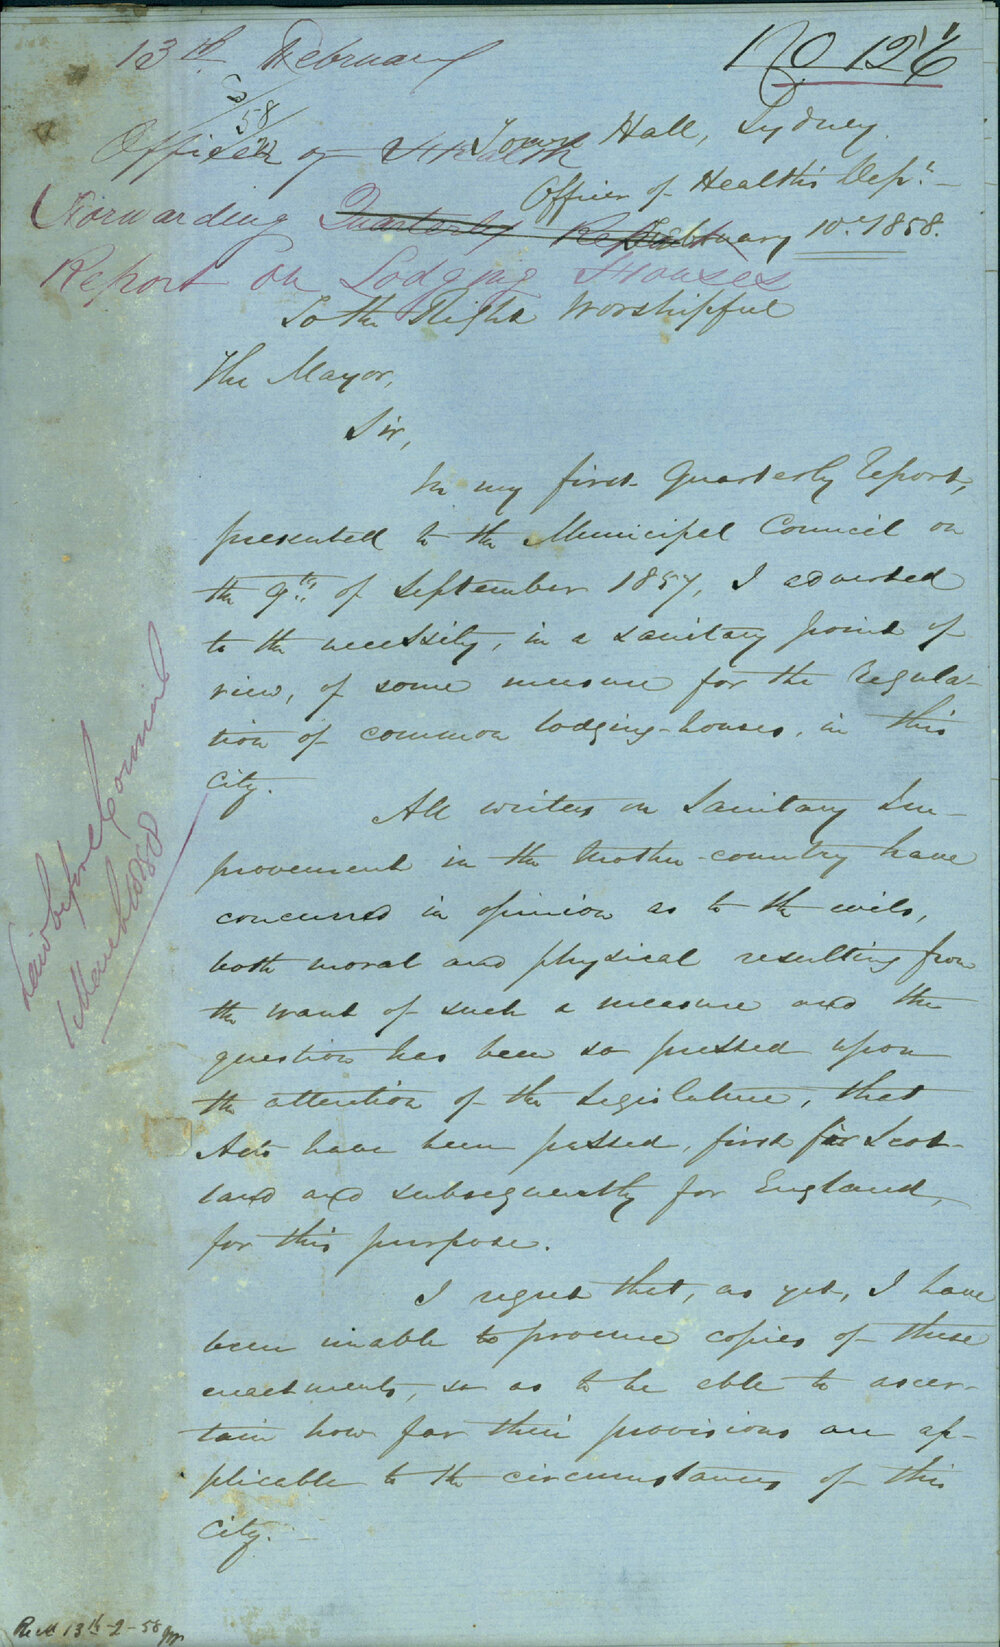 13th February
58
No 126
Officer of Health
Forwarding Quarterly Report
Report on Lodging Houses
Town Hall, Sydney.
Officer of Health's Dept.
February 10th 1858.
To the Right Worshipful
The Mayor,
Sir,
In my first Quarterly Report,
presented to the Municipal Council on
the 9th of September 1857, I adverted
to the necessity, in a sanitary point of
view, of some measure for the regula-
tion of common lodging-houses, in this
City.
All writers on Sanitary Im-
provement in the Mother-country have
concurred in opinion as to the evils,
both moral and physical resulting from
the want of such a measure and the
question has been so pressed upon
the attention of the Legislature, that
Acts have been passed, first for Scot-
land and subsequently for England,
for this purpose.
I regret that, as yet, I have
been unable to procure copies of these
enactments, so as to be able to ascer-
tain how far their provisions are ap-
plicable to the circumstances of this
City.
Laid before Council
1 March 1858
Recd 13th-2-58